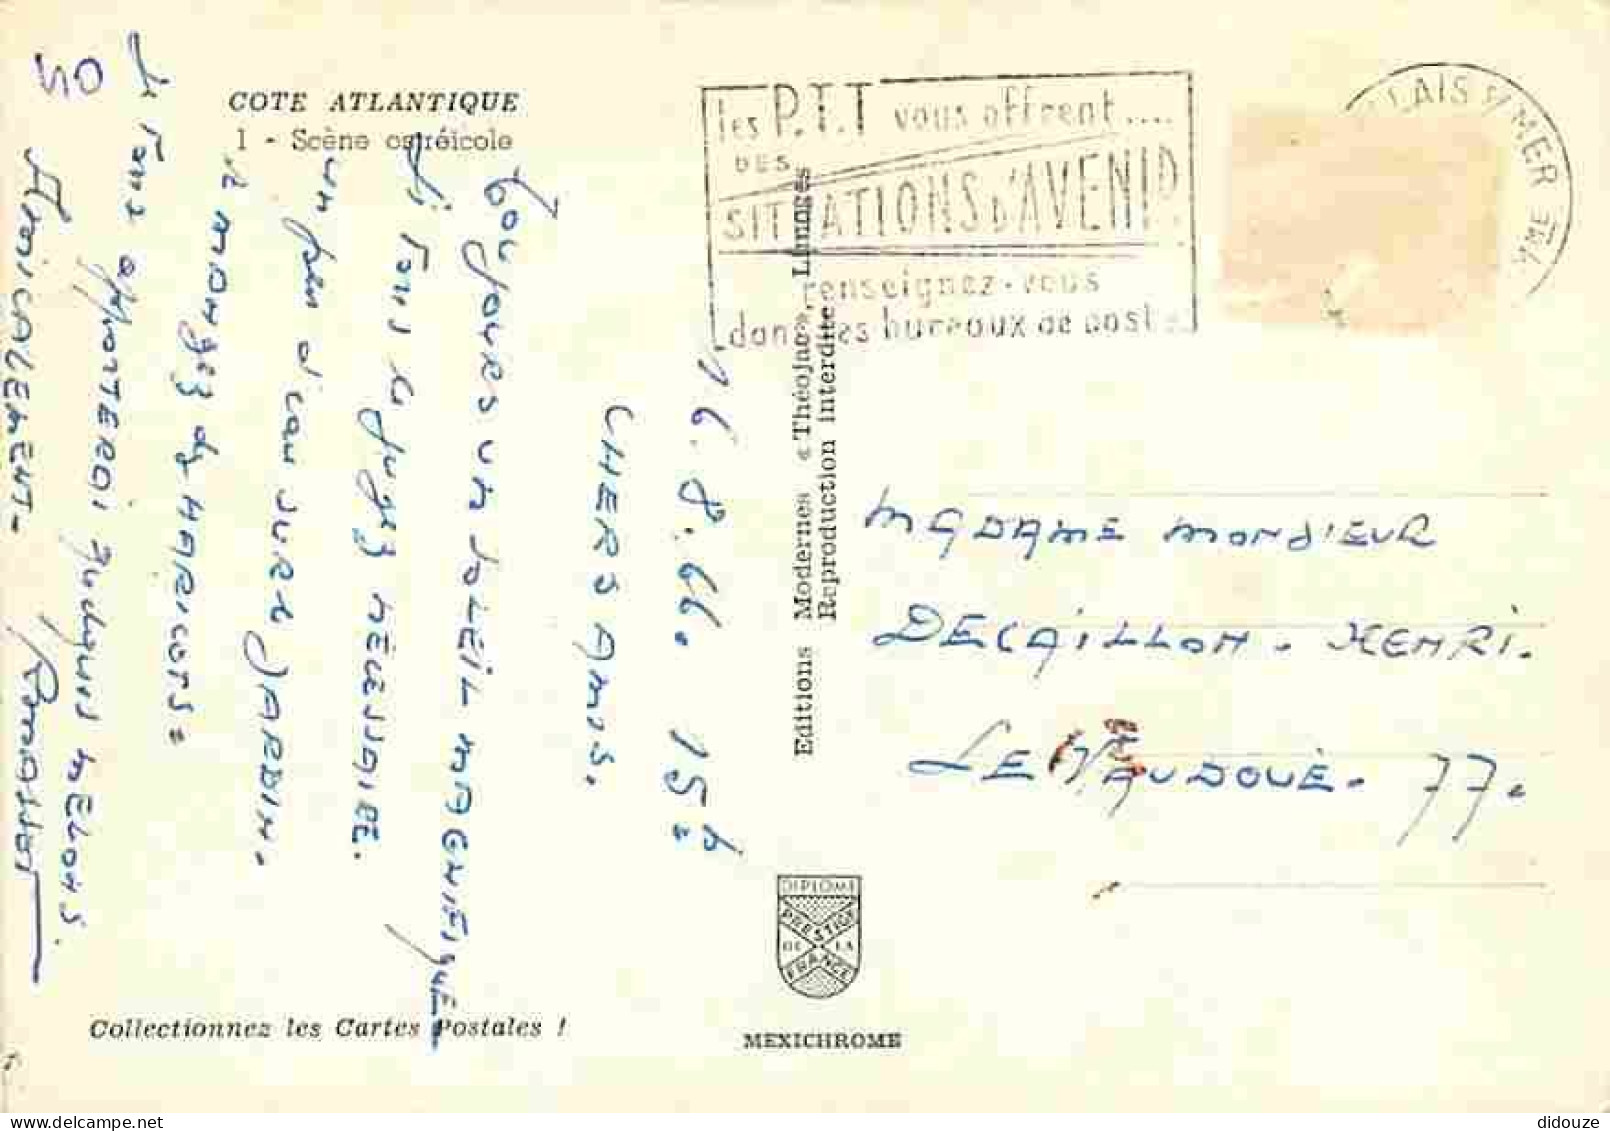 COTE ATLANTIQUE
1 - Scène ostréicole
16.8.66. 15h
CHERS AMIS.
Toujours un soleil magnifique
si vous le jugez nécessaire.
un peu d'eau sur le JARDIN.
et mangez des HARICOTS=
je vous apporterai quelques melons.
AMICALEMENT-
les P.T.T vous offrent....
DES
SITUATIONS D'AVENIR
renseignez-vous
dans les bureaux de poste
LAIS S/MER
Editions Modernes « Théojac », Limoges
Reproduction interdite
MADAME MONSIEUR
DECAILLON. HENRI.
LE VAUDOUÉ. 77.
DIPLOME
PRESTIGE
DE LA
FRANCE
MEXICHROME
Collectionnez les Cartes Postales !
didouze